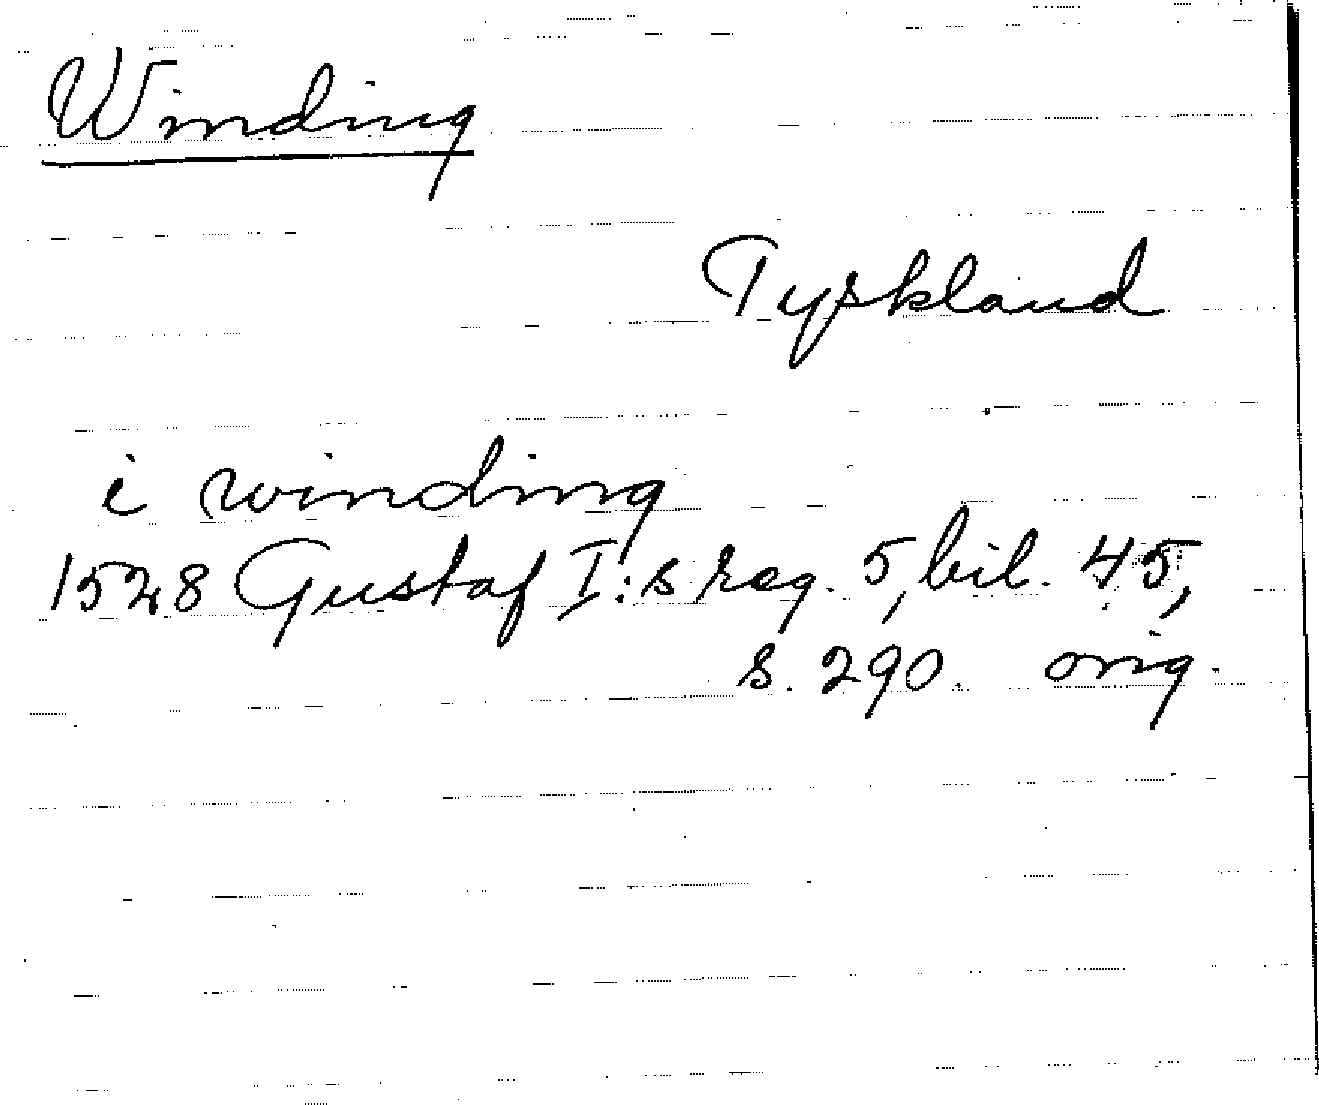 Winding
Tyskland
i winding
1528 Gustaf I:s reg. 5, bil. 45,
s. 290. orig.